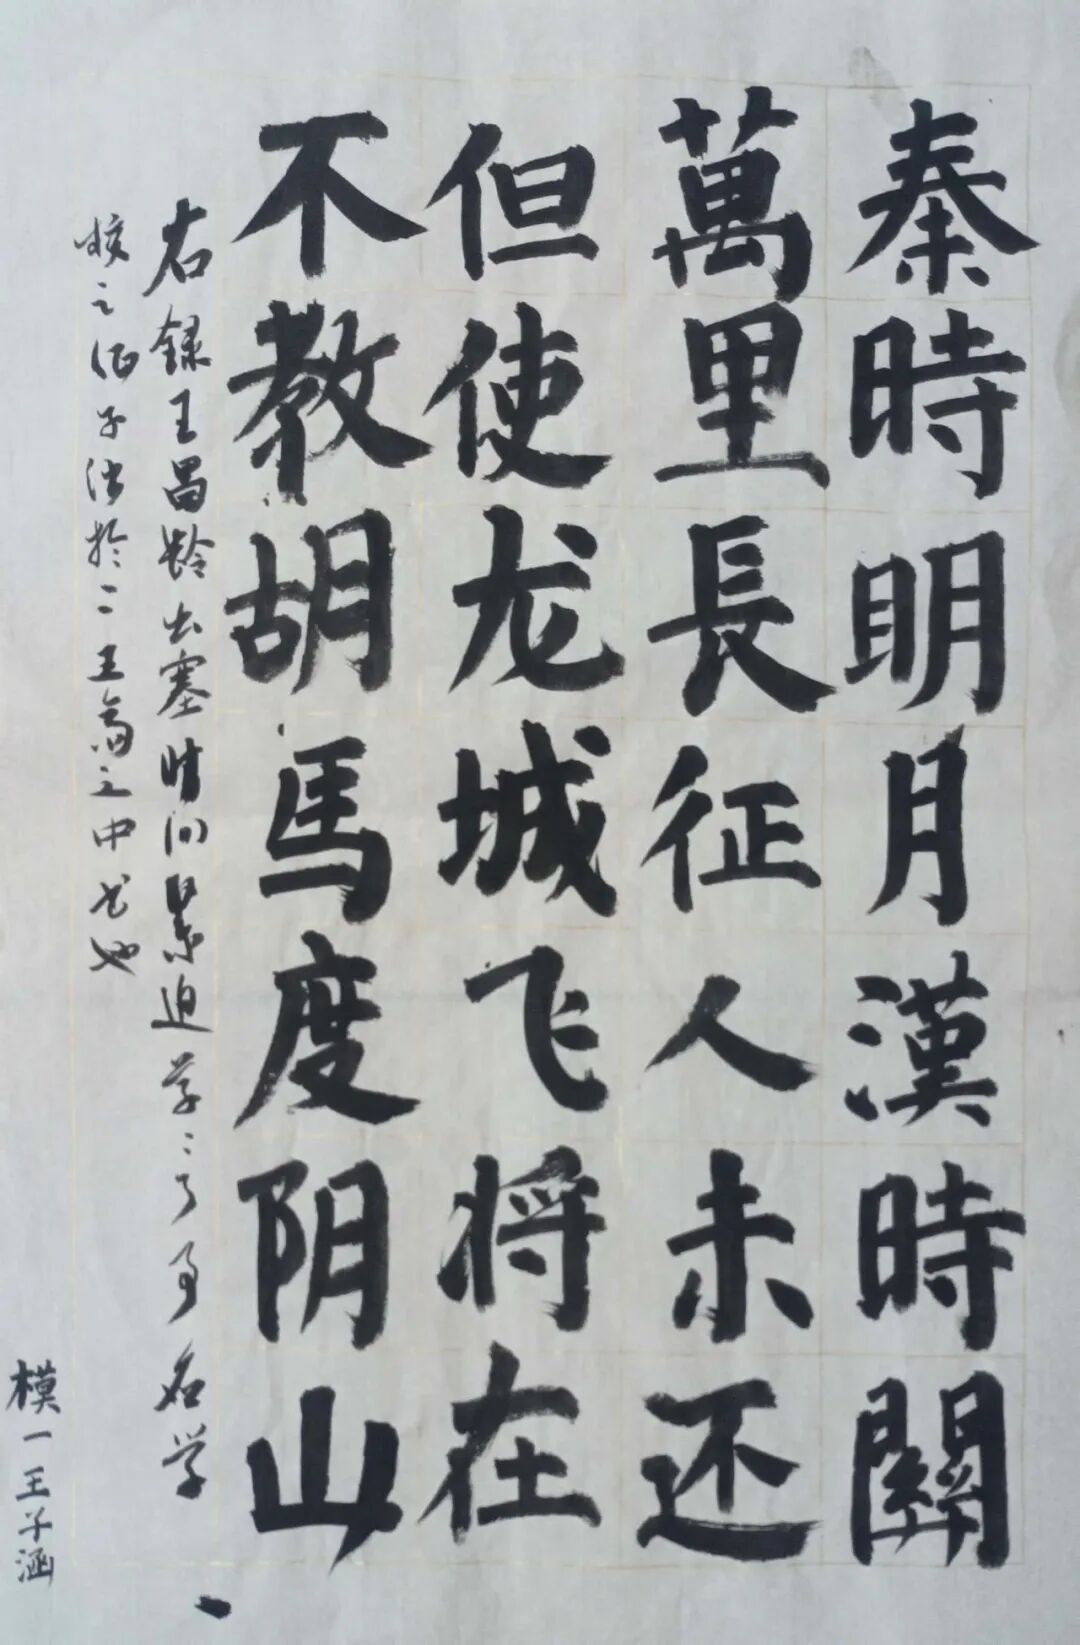 秦時明月漢時關
萬里長征人未还
但使龙城飞将在
不教胡馬度阴山
右録王昌龄出塞時间累迫学学名学
校之子法於二王之中也
模一王子涵